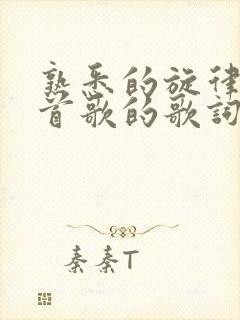 熟悉的旋律
首歌的歌词
秦秦T